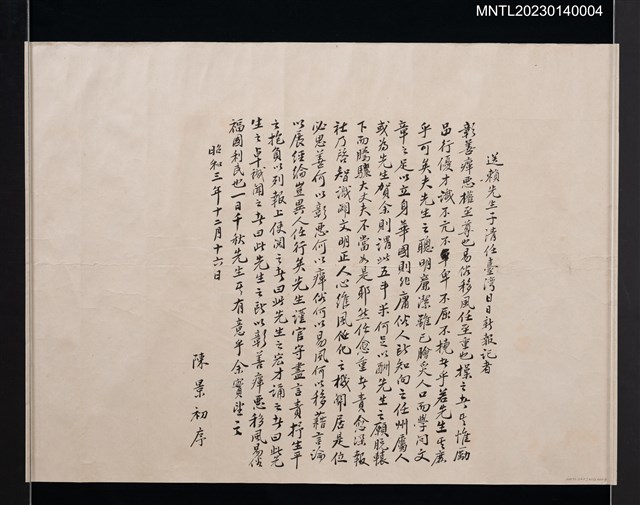 MNTL20230140004
送賴先生子清任臺灣日日新報記者
彰善癉惡權至尊也易俗移風任至重也操之者其惟勵
品行優才識不亢不卑不屈不撓者乎若先生其庶
乎可矣夫先生之聰明廉潔雖已膾炙人口而學问文
章之足以立身華國則非庸俗人所知向之任州屬人
或為先生賀余則謂此五斗米何足以酬先生之願脫轅
下而騁驥大丈夫不當如是耶然任愈重者責愈深報
社乃啓智識闢文明正人心維風化之機關居是位
必思善何以彰惡何以癉俗何以易風何以移藉言論
以展經綸豈異人任行矣先生謹官守盡言責抒生平
之抱負以列報上使閱之者曰此先生之宏才誦之者曰此先
生之卓識聞之者曰此先生之所以彰善癉惡移風易俗
福國利民也一日千秋先生其有意乎余實望之
昭和三年十二月十六日
陳景初序